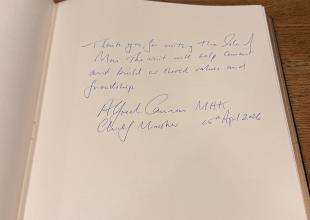 Thank you for inviting the Isle of
Man. This visit will help cement
and build our shared values and
friendship
Alfred Cannan MHK
Chief Minister 15th April 2026